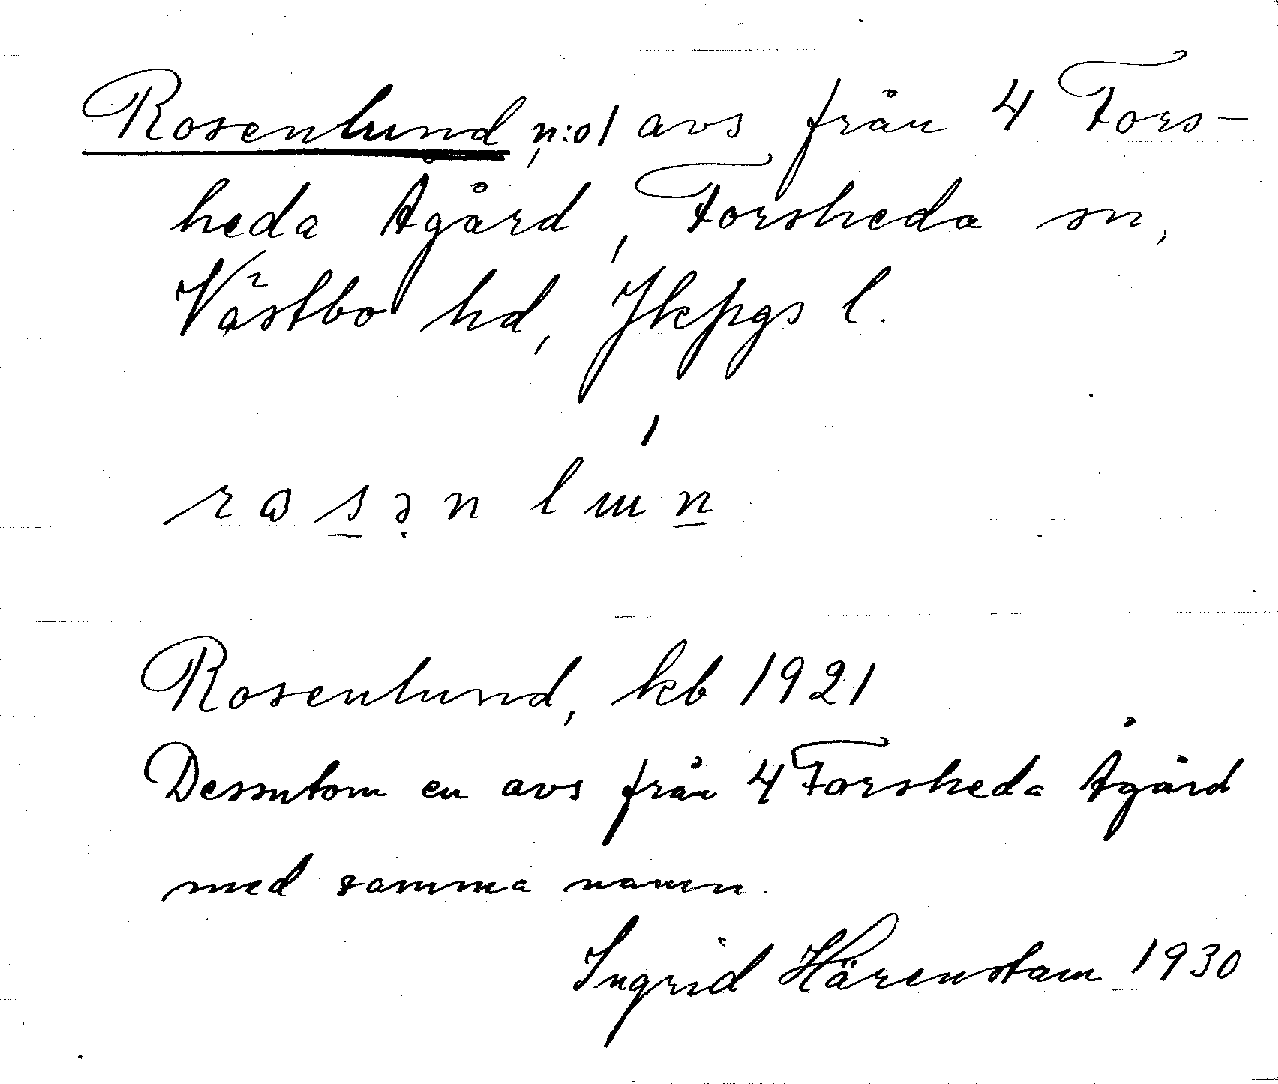 Rosenlund n:o 1 avs från 4 Fors-
heda Ågård, Forsheda sn,
Västbo hd, Jkpgs l.
Rosenlund, kb 1921
Dessutom en avs från 4 Forsheda Ågård
med samma namn.
Ingrid Härenstam 1930